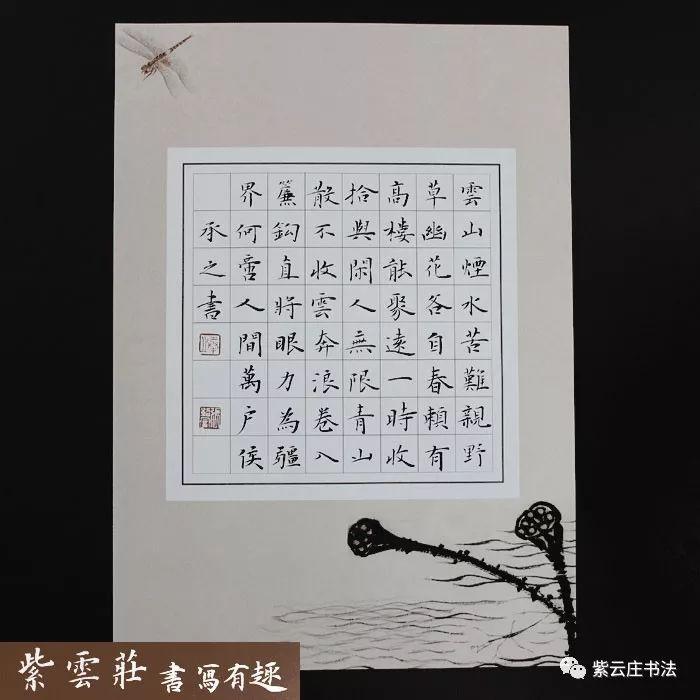 雲山煙水苦難親野
草幽花各自春賴有
高樓能聚遠一時收
拾與閑人無限青山
散不收雲奔浪卷入
簾鈎直將眼力為疆
界何啻人間萬户侯
承之書
紫雲莊書寫有趣
紫云庄书法